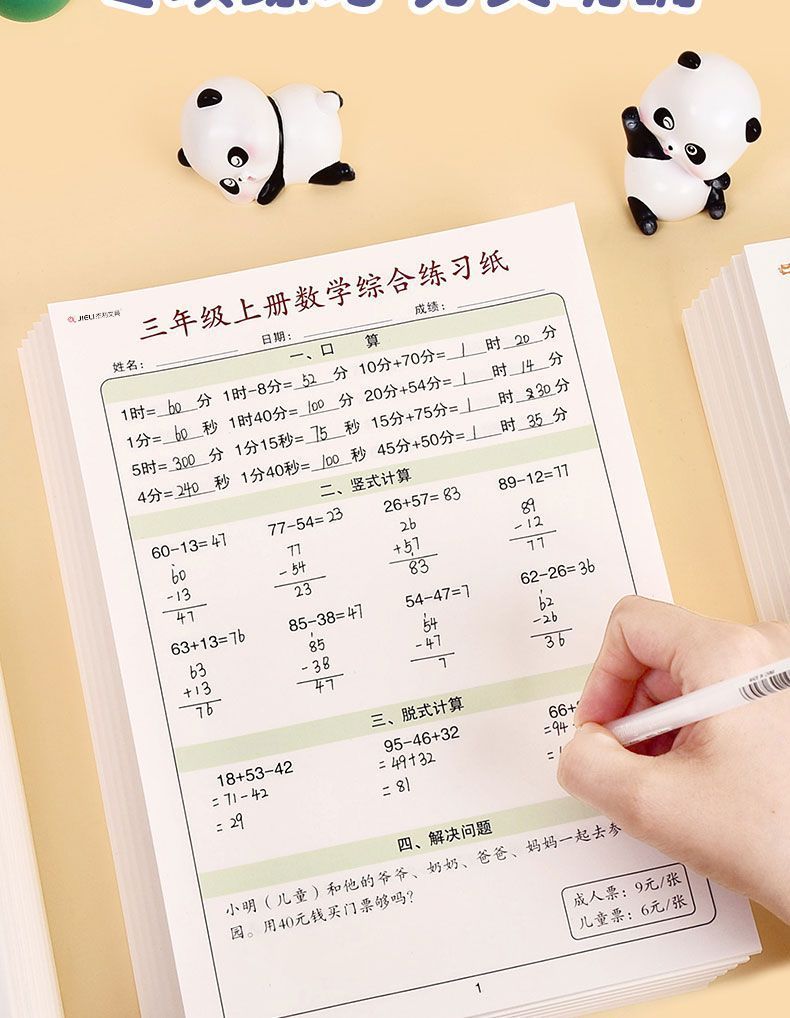 JIELI 杰利文具
三年级上册数学综合练习纸
姓名： 日期： 成绩：
一、口 算
1时=60分 1时-8分=52分 10分+70分=1时20分
1分=60秒 1时40分=100分 20分+54分=1时14分
5时=300分 1分15秒=75秒 15分+75分=1时30分
4分=240秒 1分40秒=100秒 45分+50分=1时35分
二、竖式计算
60-13=47 77-54=23 26+57=83 89-12=77
60 77 26 89
-13 -54 +57 -12
47 23 83 77
63+13=76 85-38=47 54-47=7 62-26=36
63 85 54 62
+13 -38 -47 -26
76 47 7 36
三、脱式计算
18+53-42 95-46+32 66+
=71-42 =49+32 =94
=29 =81
四、解决问题
小明（儿童）和他的爷爷、奶奶、爸爸、妈妈一起去参
园。用40元钱买门票够吗？
成人票：9元/张
儿童票：6元/张
1